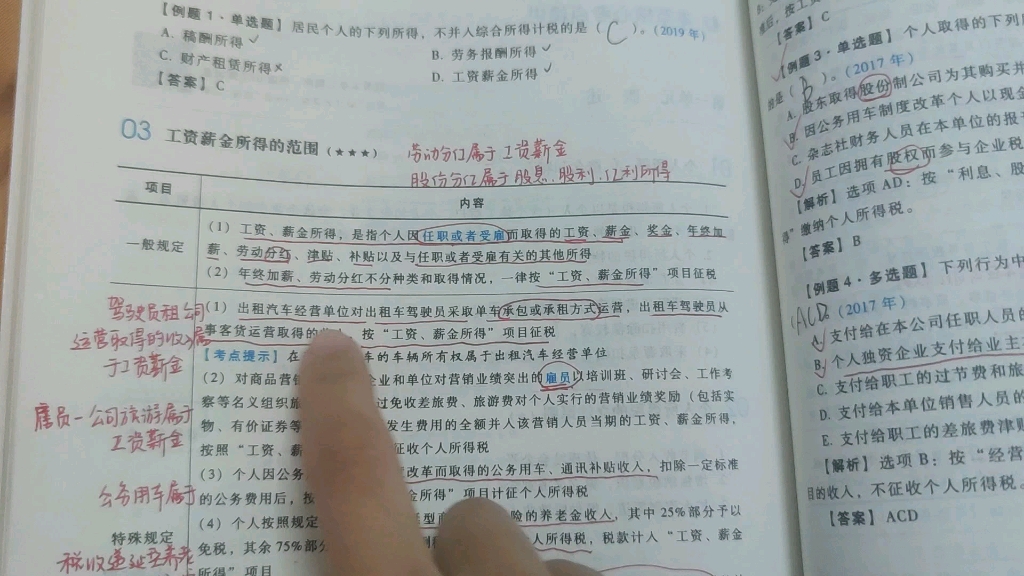 【例题1·单选题】居民个人的下列所得，不并入综合所得计税的是（C）。（2019年）
A. 稿酬所得✓
B. 劳务报酬所得✓
C. 财产租赁所得×
D. 工资薪金所得✓
【答案】C
03 工资薪金所得的范围（★★★）
劳动分红属于工资薪金
股份分红属于股息、股利、红利所得
项目
内容
一般规定
（1）工资、薪金所得，是指个人因任职或者受雇而取得的工资、薪金、奖金、年终加
薪、劳动分红、津贴、补贴以及与任职或者受雇有关的其他所得
（2）年终加薪、劳动分红不分种类和取得情况，一律按“工资、薪金所得”项目征税
特殊规定
（1）出租汽车经营单位对出租车驾驶员采取单车承包或承租方式运营，出租车驾驶员从
事客货运营取得的 按“工资、薪金所得”项目征税
【考点提示】在 车的车辆所有权属于出租汽车经营单位
（2）对商品营 企业和单位对营销业绩突出的雇员以培训班、研讨会、工作考
察等名义组织旅 过免收差旅费、旅游费对个人实行的营销业绩奖励（包括实
物、有价证券等 发生费用的全额并入该营销人员当期的工资、薪金所得，
按照“工资、薪 征收个人所得税
（3）个人因公务 改革而取得的公务用车、通讯补贴收入，扣除一定标准
的公务费用后，按 金所得”项目计征个人所得税
（4）个人按照规定 型 险的养老金收入，其中25%部分予以
免税，其余75%部分 人所得税，税款计入“工资、薪金
所得”项目
驾驶员租公司
运营取得的收入属
于工资薪金
雇员—公司旅游属于
工资薪金
公务用车属于
税收递延型养老
【答案】C
【例题3·单选题】个人取得的下列
是（B）。（2017年）
A. 股东取得股份制公司为其购买并
B. 因公务用车制度改革个人以现金
C. 杂志社财务人员在本单位的报
D. 员工因拥有股权而参与企业税
【解析】选项AD：按“利息、股
得”缴纳个人所得税。
【答案】B
【例题4·多选题】下列行为中
ACD（2017年）
A. 支付给在本公司任职人员的
B. 个人独资企业支付给业主
C. 支付给职工的过节费和旅
D. 支付给本单位销售人员的
E. 支付给职工的差旅费津贴
【解析】选项B：按“经营
目的收入，不征收个人所得税。
【答案】ACD